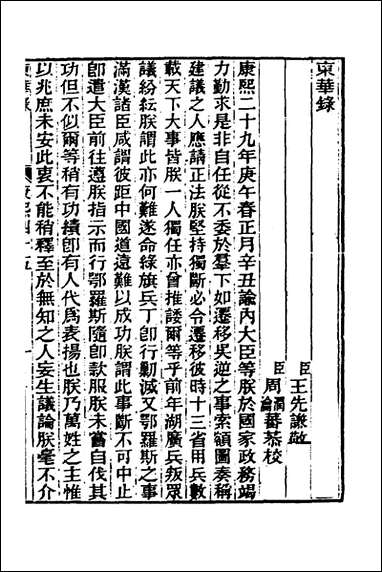 東華錄
臣王先謙敬編
臣周潤蕃恭校
康熙二十九年庚午春正月辛丑諭內大臣等朕於國家政務竭
力勤求是非自任從不委於羣下如遷移吳逆之事索額圖奏稱
建議之人應請正法朕堅持獨斷必令遷移彼時十三省用兵數
載天下大事皆朕一人獨任亦曾推諉爾等乎前年湖廣兵叛眾
議紛紜朕謂此亦何難遂命綠旗兵丁卽行勦滅又鄂羅斯之事
滿漢諸臣咸謂彼距中國道遠難以成功朕謂此事斷不可中止
卽遣大臣前往遵朕指示而行鄂羅斯隨卽款服朕未嘗自伐其
功但不似爾等稍有功績卽有人代爲表揚也朕乃萬姓之主惟
以兆庶未安此衷不能稍釋至於無知之人妄生議論朕毫不介